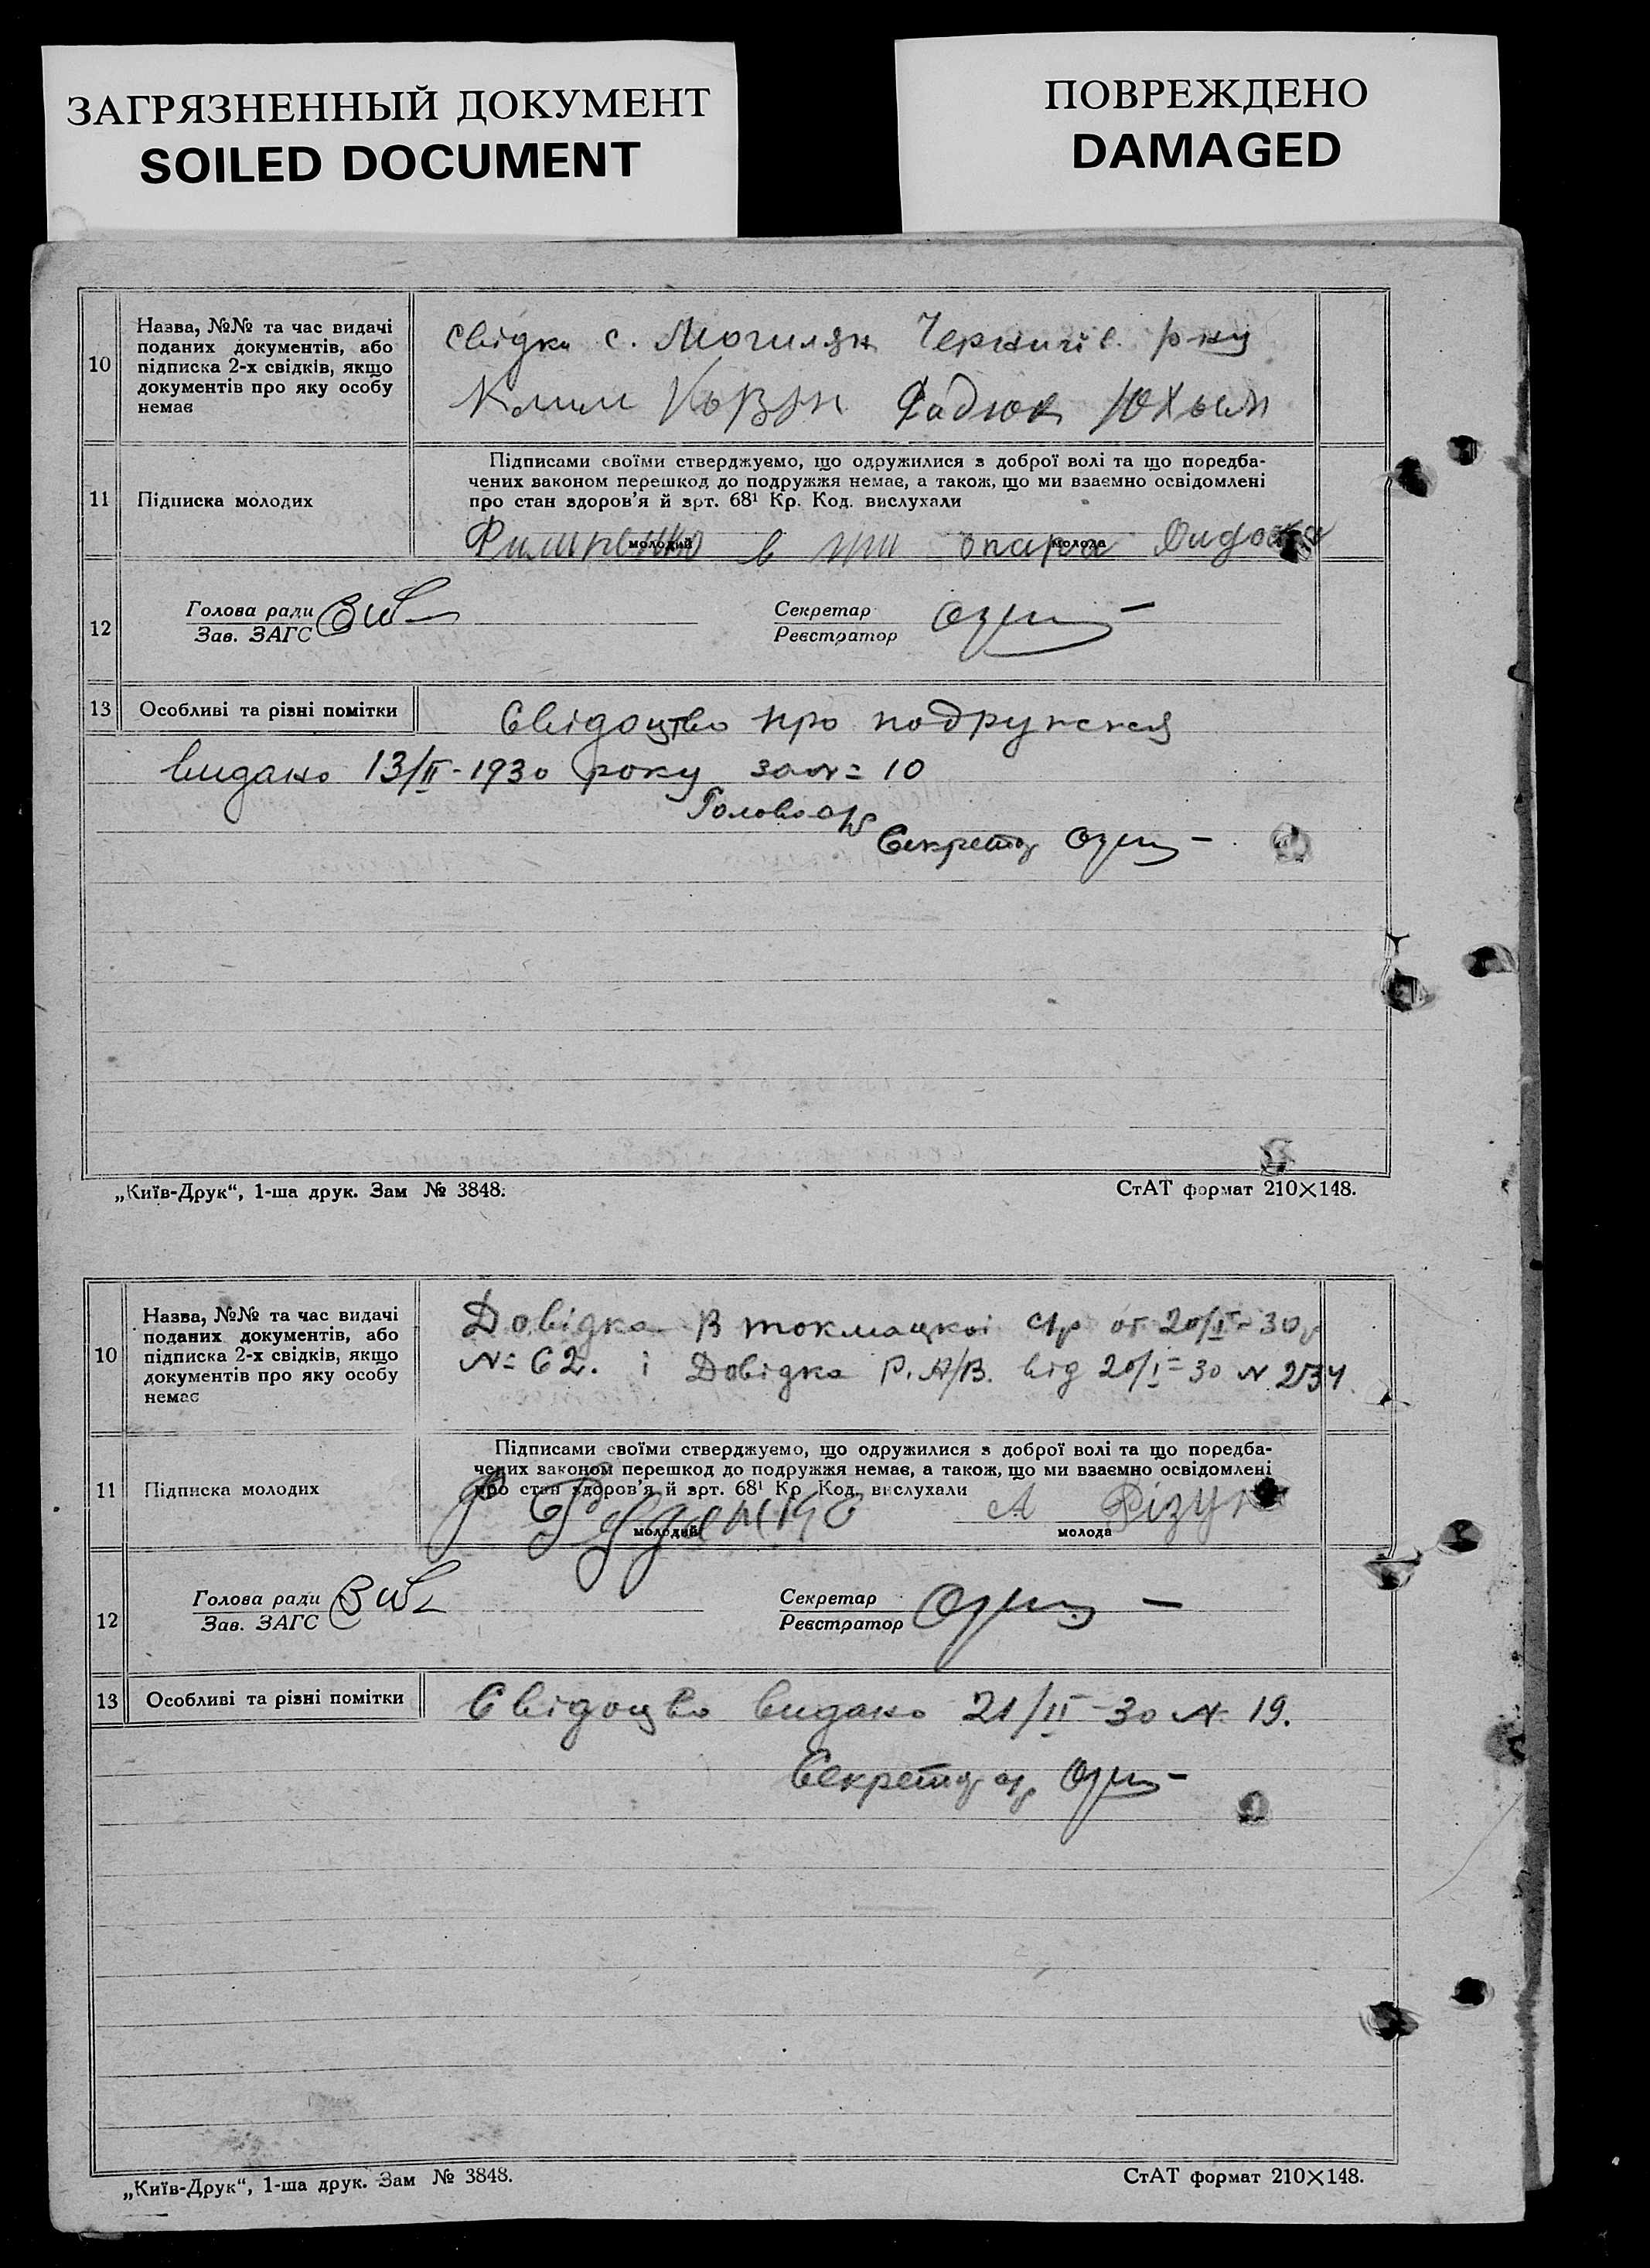 ЗАГРЯЗНЕННЫЙ ДОКУМЕНТ
SOILED DOCUMENT
ПОВРЕЖДЕНО
DAMAGED
10
Назва, №№ та час видачі
поданих документів, або
підписка 2-х свідків, якщо
документів про яку особу
немає
свідки с. Могилян Чернигів.
Клим Фадюк Юхым
11
Підписка молодих
Підписами своїми стверджуємо, що одружилися з доброї волі та що поредба-
чених ваконом перешкод до подружжя немає, а також, що ми взаємно освідомлені
про стан здоров'я й арт. 68¹ Кр. Код. вислухали
молодий молода
12
Голова ради
Зав. ЗАГС
Секретар
Реєстратор
13
Особливі та різні помітки
Свідоцтво про подружжя
видано 13/II-1930 року за №= 10
Голова с/р
Секретар
„Київ-Друк“, 1-ша друк. Зам № 3848.
СтАТ формат 210×148.
10
Назва, №№ та час видачі
поданих документів, або
підписка 2-х свідків, якщо
документів про яку особу
немає
Довідка В токмацкоі с/р от 20/I-30р
№= 62. і Довідка Р.А/В. від 20/I=30 №
11
Підписка молодих
Підписами своїми стверджуємо, що одружилися з доброї волі та що поредба-
чених ваконом перешкод до подружжя немає, а також, що ми взаємно освідомлені
про стан здоров'я й арт. 68¹ Кр. Код. вислухали
А
молодий молода
12
Голова ради
Зав. ЗАГС
Секретар
Реєстратор
13
Особливі та різні помітки
Свідоцво видано 21/II-30 №. 19.
Секретар с/р
„Київ-Друк“, 1-ша друк. Зам № 3848.
СтАТ формат 210×148.